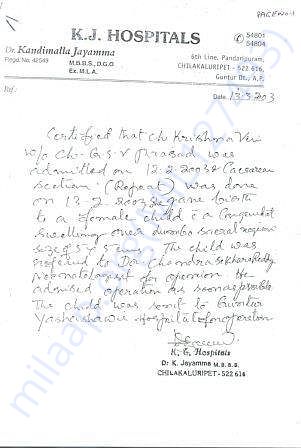 K.J. HOSPITALS
Dr. Kandimalla Jayamma
Regd. No. 42549
M.B.B.S., D.G.O
Ex. M.L.A.
54801
54804
6th Line, Pandaripuram,
CHILAKALURIPET - 522 616,
Guntur Dt., A.P.
Ref:
Date 13-3-2003
Certified that Ch Krishna Veni
W/o Ch. G.S.V Prasad was
admitted on 12-2-2003 Caesarean
Section (Repeat) was done
on 13-2-2003 gave birth
to a female child c̄ a Congenital
Swelling over Lumbo sacral region
size 5 x 5 cm. The child was
referred to Dr. Chandra sekhara Reddy
neonatologist for opinion He
advised operation as soon as possible
The child was sent to Guntur
Yashaswi Hospital for operation
K. G. Hospitals
Dr. K. Jayamma M.B.B.S.
CHILAKALURIPET - 522 614